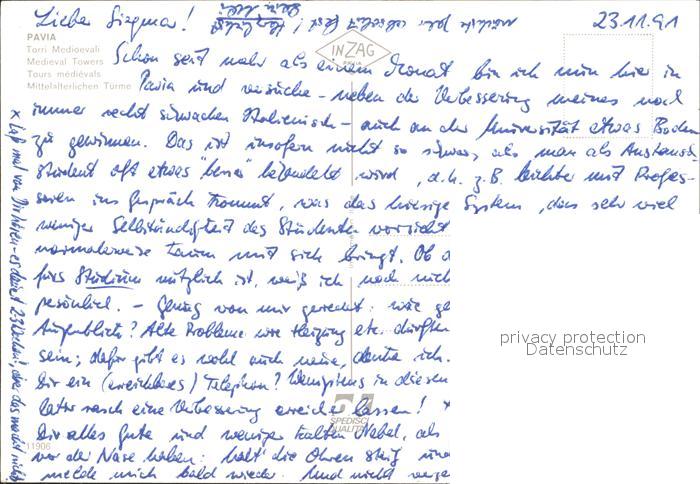 Liebe Siegrun!
23.11.91
PAVIA
Torri Medioevali
Medieval Towers
Tours médiévals
Mittelalterlichen Türme
INZAG
Schon seit mehr als einem Monat bin ich nun hier in
Pavia und versuche – neben der Verbesserung meines noch
immer recht schwachen Italienisch – auch an der Universität etwas Boden
zu gewinnen. Das ist insofern nicht so schwer, als man als Auslands-
student oft etwas "besser" behandelt wird, d.h. z.B. leichter mit Profes-
soren ins Gespräch kommt, was das hiesige System, das sehr viel
weniger Selbständigkeit des Studenten vorsieht
normalerweise kaum mit sich bringt. Ob d
fürs Studium nützlich ist, weiß ich noch nich
persönlich. – Genug von mir geredet: wie ge
Augenblick? Alte Probleme wie Heizung etc. dürften
sein; dafür gibt es wohl auch neue, denke ich.
Dir ein (erreichbares) Telephon? Wenigstens in diesem
lassen!
SPEDISCI
QUALITÀ
Dir alles Gute und weniger kalten Nebel, als
vor der Nase haben: halt' die Ohren steif und
melde mich bald wieder. Und nicht verge
11906
privacy protection
Datenschutz